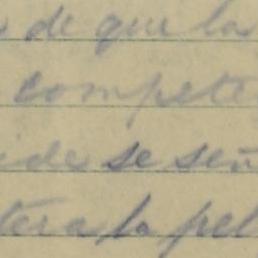 de que la
compete
ide se señ
tera la pel